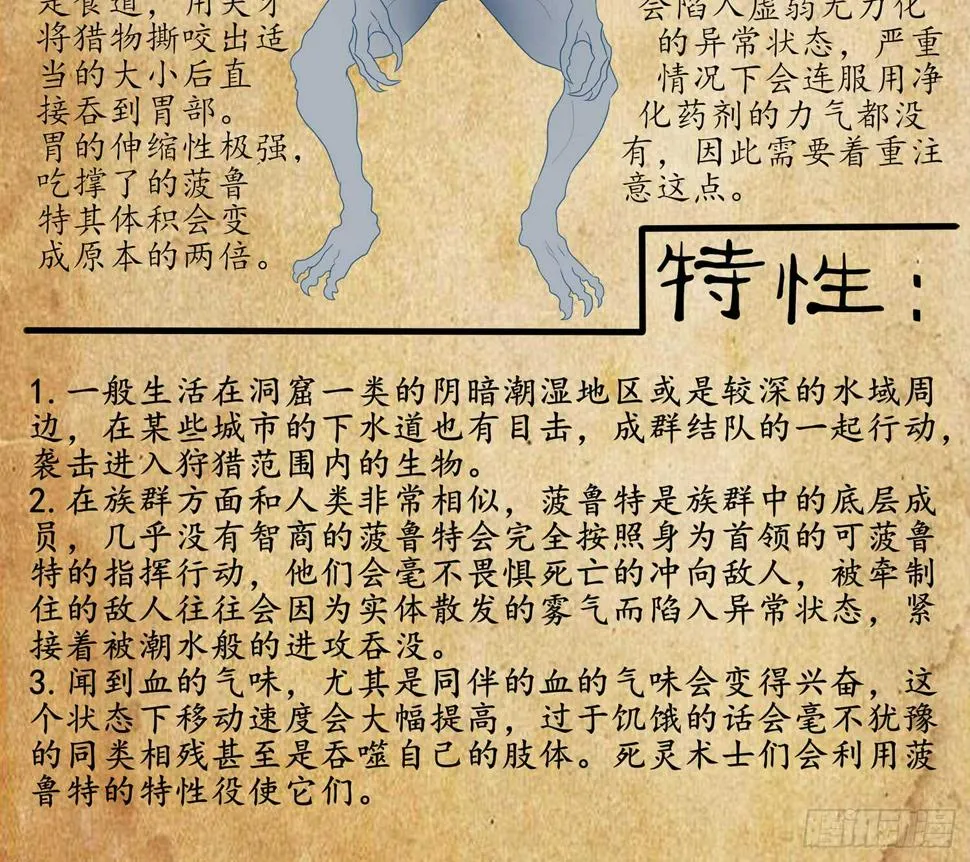 是食道，用尖牙
将猎物撕咬出适
当的大小后直
接吞到胃部。
胃的伸缩性极强，
吃撑了的菠鲁
特其体积会变
成原本的两倍。
会陷入虚弱无力化
的异常状态，严重
情况下会连服用净
化药剂的力气都没
有，因此需要着重注
意这点。
特性：
1.一般生活在洞窟一类的阴暗潮湿地区或是较深的水域周
边，在某些城市的下水道也有目击，成群结队的一起行动，
袭击进入狩猎范围内的生物。
2.在族群方面和人类非常相似，菠鲁特是族群中的底层成
员，几乎没有智商的菠鲁特会完全按照身为首领的可菠鲁
特的指挥行动，他们会毫不畏惧死亡的冲向敌人，被牵制
住的敌人往往会因为实体散发的雾气而陷入异常状态，紧
接着被潮水般的进攻吞没。
3.闻到血的气味，尤其是同伴的血的气味会变得兴奋，这
个状态下移动速度会大幅提高，过于饥饿的话会毫不犹豫
的同类相残甚至是吞噬自己的肢体。死灵术士们会利用菠
鲁特的特性役使它们。
腾讯动漫